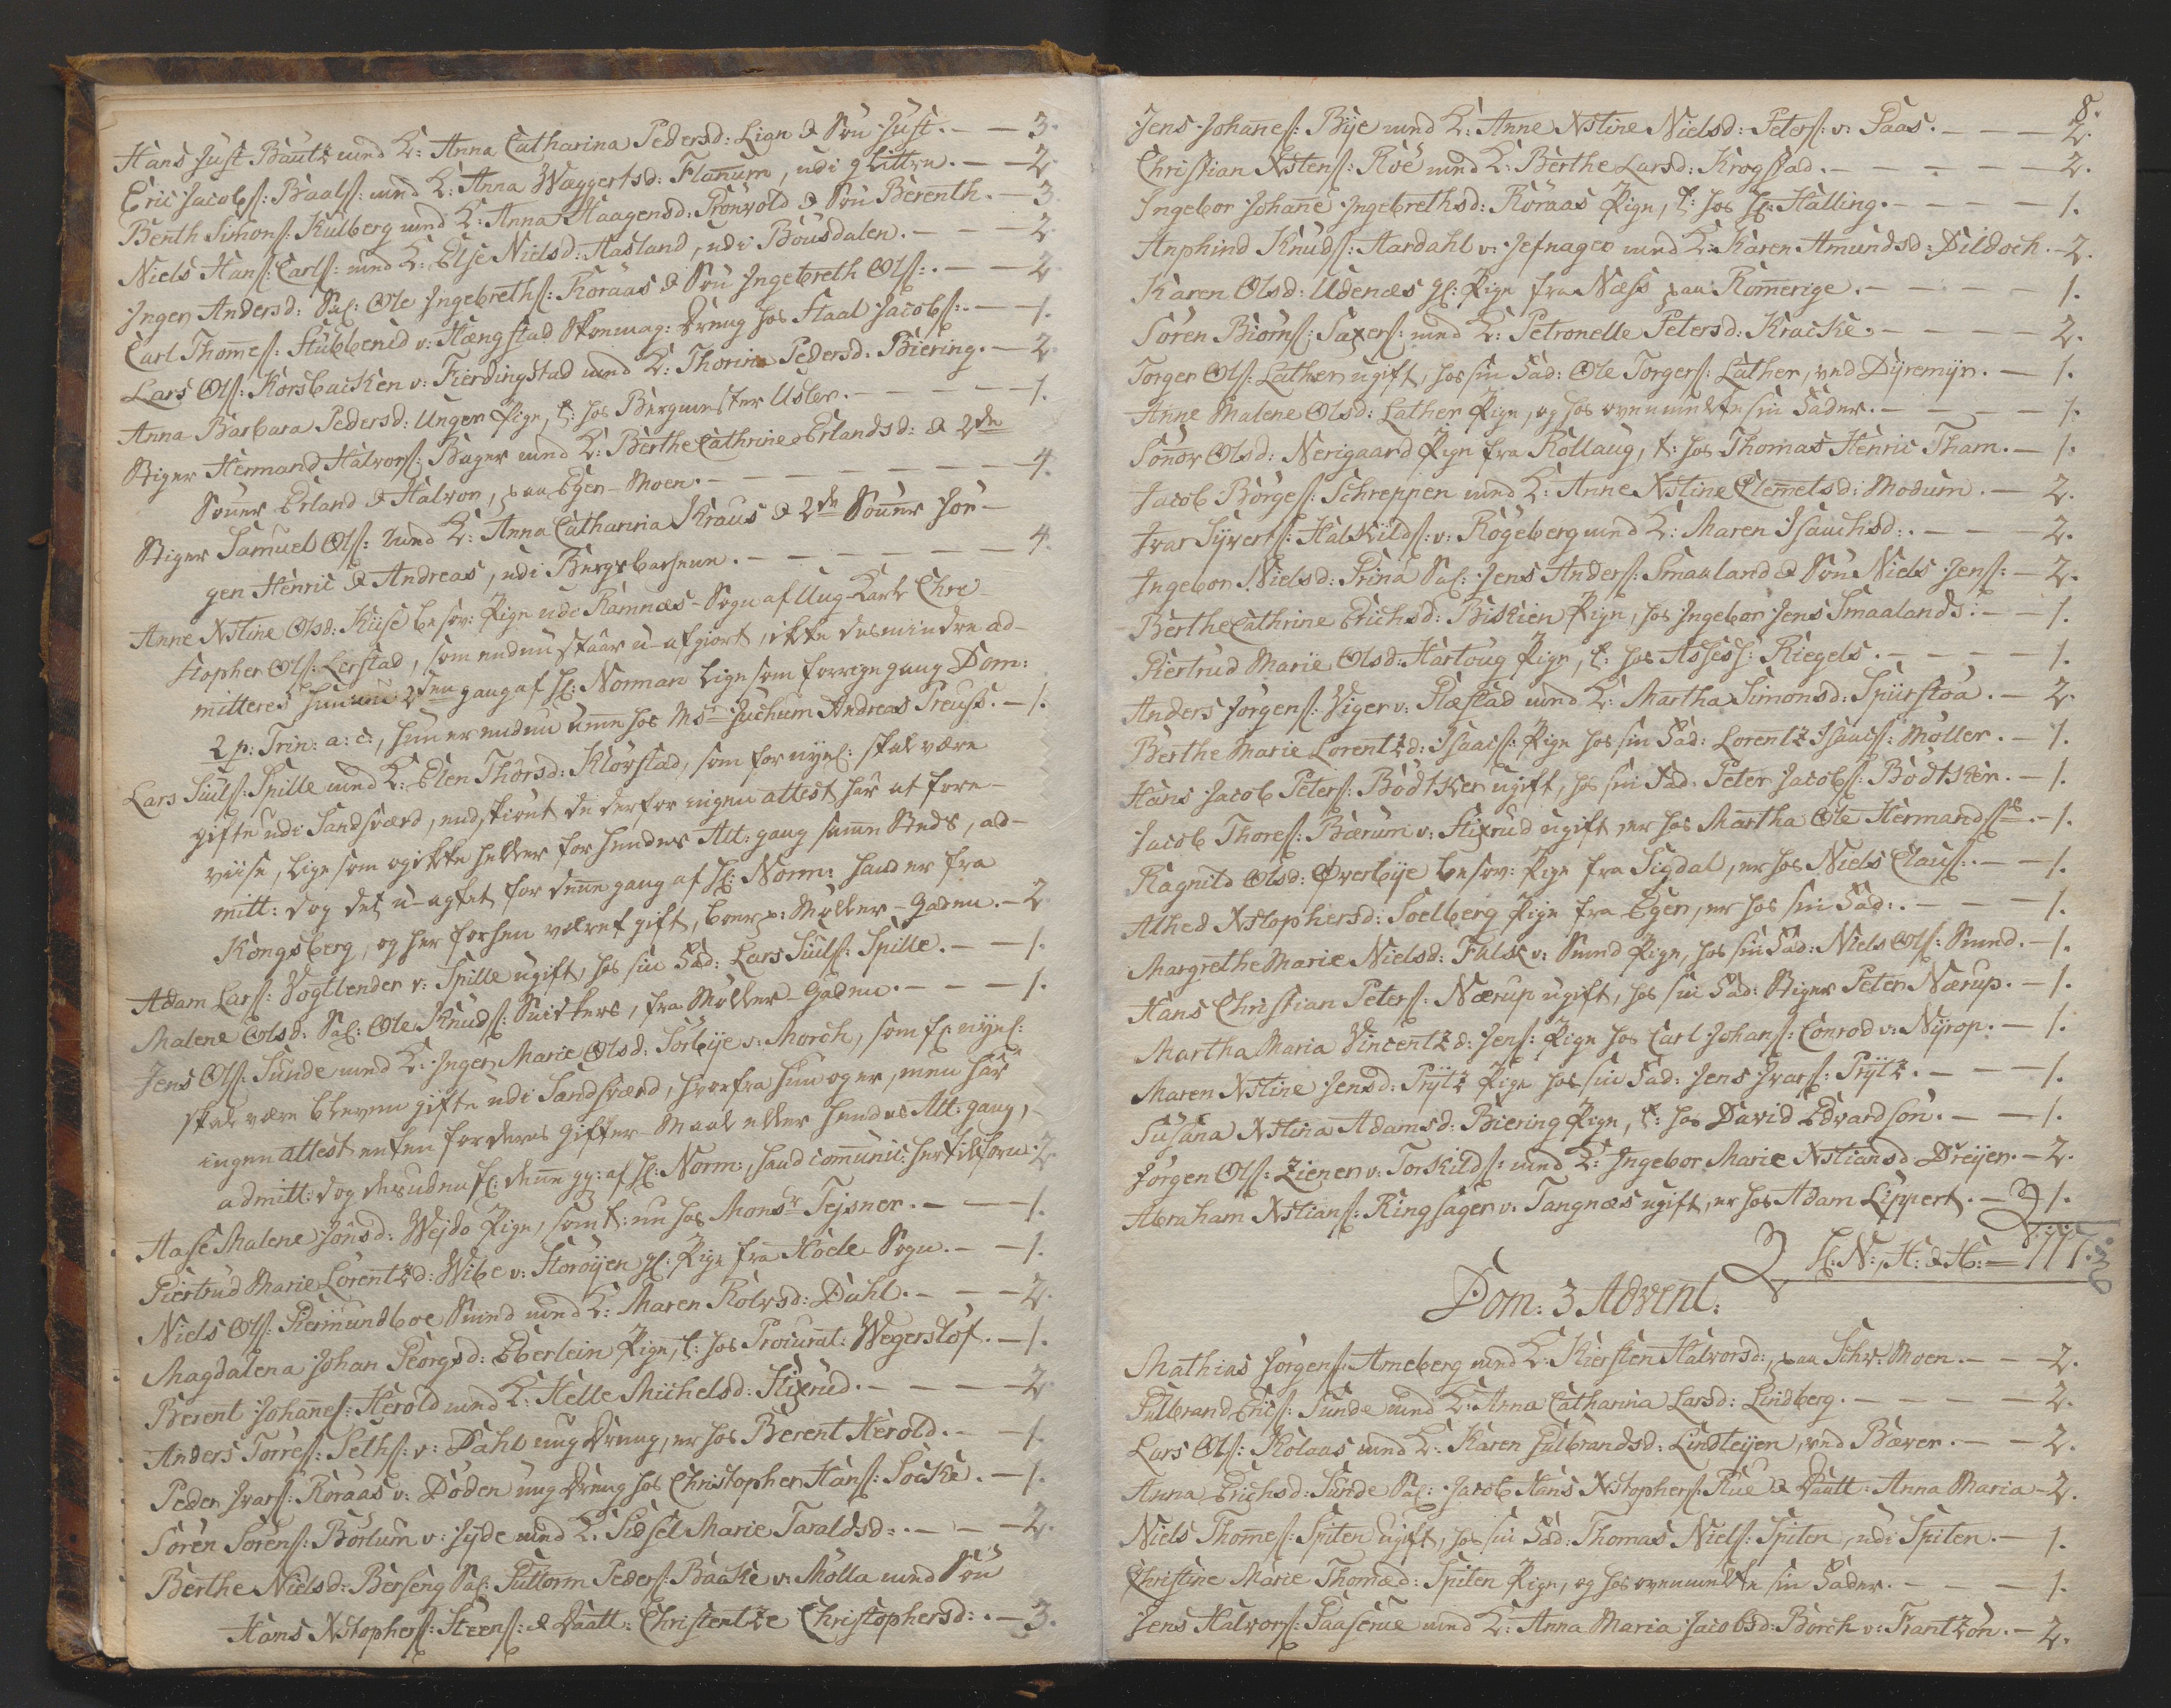 Hans Just Bautz med K: Anna Catharina Pedersd: Lign & Søn Just. — — 3.
Eric Jacobs: Baals: med K: Anna Waggertsd: Flanum, udi gHitten. — — 2.
Benth Simons: Kulberg med K: Anna Haagensd: Pronvold & Søn Berenth. — 3.
Niels Hans: Carls: med K: Else Nielsd: Hasland, udi Bousdalen. — — — 2.
Inger Andersd: Sal: Ole Ingebreths: Roraas & Søn Ingebreth Ols: — — — 2.
Carl Thomes: Stubbenid v: Hængstad Skomag: Dreng hos Staal Jacobs: — — 1.
Lars Ols: Korsbacken v: Fierdingstad med K: Thorin Pedersd: Biering. — 2.
Anna Barbara Pedersd: Unger Pige, t: hos Bergmester Usler. — — — — 1.
Stiger Hermand Halvors: Bager med K: Berthe Cathrine Erlandsd: & 2de
Sønner Erland & Halvor, paa Egers-Moen. — — — — — — 4.
Stiger Samuel Ols: med K: Anna Catharina Kraus & 2de Sønner Jør-
gen Henric & Andreas, udi Bergsbarsene. — — — — — — 4.
Anne Xstine Olsd: Kiise besov: Pige udi Ramnæs-Sogn af Ung-Karl Chri-
stopher Ols: Lerstad, som endnu staar u-afgiort, ikke desmindre ad-
mitteres hun nu 2den gang af H: Norman ligesom forrige gang Dom:
2 p: Trin: a: c:, hun er endnu Amme hos Msr Juchum Andreas Preuss. — 1.
Lars Siuls: Spille med K: Elen Thorsd: Klovstad, som for nyel: skal være
gifte udi Sandsværd, endskiønt de derfor ingen attest har at fore-
viise, lige som og ikke heller for hendes Alt: gang samme Steds, ad-
mitt: dog det u-agtet for denne gang af H: Norm: hand er fra
Kongsberg, og her forhen været gift, boer p: Møller-Gaden. — 2
Adam Lars: Vogtlender v: Spille ugift, hos sin Fad: Lars Siuls: Spille. — — 1.
Malene Olsd: Sal: Ole Knuds: Snitkers, fra Møller-Gaden. — — — 1.
Jens Ols: Sunde med K: Inger Marie Olsd: Sorbye v: Morch, som f: nyel:
skal være bleven gifte udi Sandsværd, hvorfra hun og er, men har
ingen attest enten for deres Gifter-Maal eller hendes Alt: gang,
admitt: dog desuden f: denne gg: af H: Norm:, hand comunic: hertilforn: 2.
Aase Malene Jonsd: Wejdo Pige, som t: nu hos Monsr Tejsner. — — 1.
Giertrud Marie Lorentzd: Wibe v: Storøyen gl: Pige fra Hoele Sogn. — — 1.
Niels Ols: Giermundboe Smed med K: Maren Rolvsd: Dahl. — — — 2.
Magdalena Johan Georgsd: Eberlein Pige, t: hos Procurat: Wegerslof. — 1.
Berent Johannes: Herold med K: Helle Michelsd: Stixrud. — — — — 2.
Anders Torres: Seths: v: Dahl ung Dreng, er hos Berent Herold. — — 1.
Peder Ivars: Roraas v: Doden ung Dreng hos Christopher Hans: Socke. — 1.
Søren Sørens: Borlum v: Jyde med K: Sidsel Marie Taraldsd: — — — 2.
Berthe Nielsd: Berseng Sal: Guttorm Peders: Backe v: Molla med Søn
Hans Xstophers: Steens: & Daatt: Christentze Christophersd: — 3.
8.
Jens Johannes: Bye med K: Anne Xstine Nielsd: Peters: v: Paas. — — — 2.
Christian Xstens: Roe med K: Berthe Larsd: Krogstad. — — — — 2.
Ingebor Johanne Ingebrethsd: Roraas Pige, t: hos H: Halling. — — — — 1.
Anphind Knuds: Aardahl v: Jefnager med K: Karen Amundsd: Dildoch. — 2.
Karen Olsd: Udenæs gl: Pige fra Næss paa Romerige. — — — — 1.
Søren Biørns: Saxers: med K: Petronelle Petersd: Kracke. — — — — 2.
Torger Ols: Lather ugift, hos sin Fad: Ole Torgers: Lather, ved Dyremyr. — 1.
Anne Malene Olsd: Lather Pige, og hos ovenmelte sin Fader. — — — — 1.
Sønov Olsd: Nerigaard Pige fra Rollaug, t: hos Thomas Henric Tham. — 1.
Jacob Børges: Schreppen med K: Anne Xstine Clemetsd: Modum. — 2.
Ivar Syverts: Halkilds: v: Rogeberg med K: Maren Isaachsd: — — — 2.
Ingebor Nielsd: Prina Sal: Jens Anders: Smaaland & Søn Niels Jens: — 2.
Berthe Cathrine Erichsd: Biskien Pige, hos Ingebor Jens Smaalands: — — 1.
Giertrud Marie Olsd: Hartoug Pige, t: hos Assess: Riegels. — — — — 1.
Anders Jørgens: Viger v: Plæstad med K: Martha Simonsd: Spiirstoa. — 2.
Berthe Marie Lorentzd: Isaacs: Pige hos sin Fad: Lorentz Isaacs: Møller. — 1.
Hans Jacob Peters: Bødtker ugift, hos sin Fad: Peter Jacobs: Bødtker. — 1.
Jacob Thores: Bærum v: Stixrud ugift, er hos Martha Ole Hermands: — 1.
Ragnild Olsd: Øverbye besov: Pige fra Sigdal, er hos Niels Claus: — — 1.
Alhed Xstophersd: Soelberg Pige fra Eger, er hos sin Fad: — — — 1.
Margrethe Marie Nielsd: Fals v: Smed Pige, hos sin Fad: Niels Ols: Smed. — 1.
Hans Christian Peters: Nærup ugift, hos sin Fad: Stiger Peter Nærup. — 1.
Martha Maria Vincentzd: Jens: Pige hos Carl Johans: Conrod v: Nyrop. — 1.
Maren Xstine Jensd: Prytz Pige hos sin Fad: Jens Ivars: Prytz. — — — 1.
Susana Xstina Adamsd: Biering Pige, t: hos David Edvardson. — — 1.
Jørgen Ols: Ziener v: Torkilds: med K: Ingebor Marie Xstiansd: Dreyer. — 2.
Abraham Xstians: Ringsager v: Tangnæs ugift, er hos Adam Lippert. — 1.
H: N:, H: & H: — 117.
Dom: 3 Advent:
Mathias Jørgens: Arneberg med K: Kiersten Halvorsd:, paa Schr: Moen. — — 2.
Gulbrand Erics: Sunde med K: Anna Catharina Larsd: Lindberg. — — — — 2.
Lars Ols: Kolaas med K: Karen Gulbrandsd: Lindteyen, ved Bæver. — — 2.
Anna Erichsd: Sunde Sal: Jacob Hans Xstophers: Rue & Daatt: Anna Maria — 2.
Niels Thomes: Spiten ugift, hos sin Fad: Thomas Niels: Spiten, udi Spiten. — 1.
Christine Marie Thomæd: Spiten Pige, og hos ovenmelte sin Fader. — — — 1.
Jens Halvors: Paaserue med K: Anna Maria Jacobsd: Borch v: Frantzon. — 2.